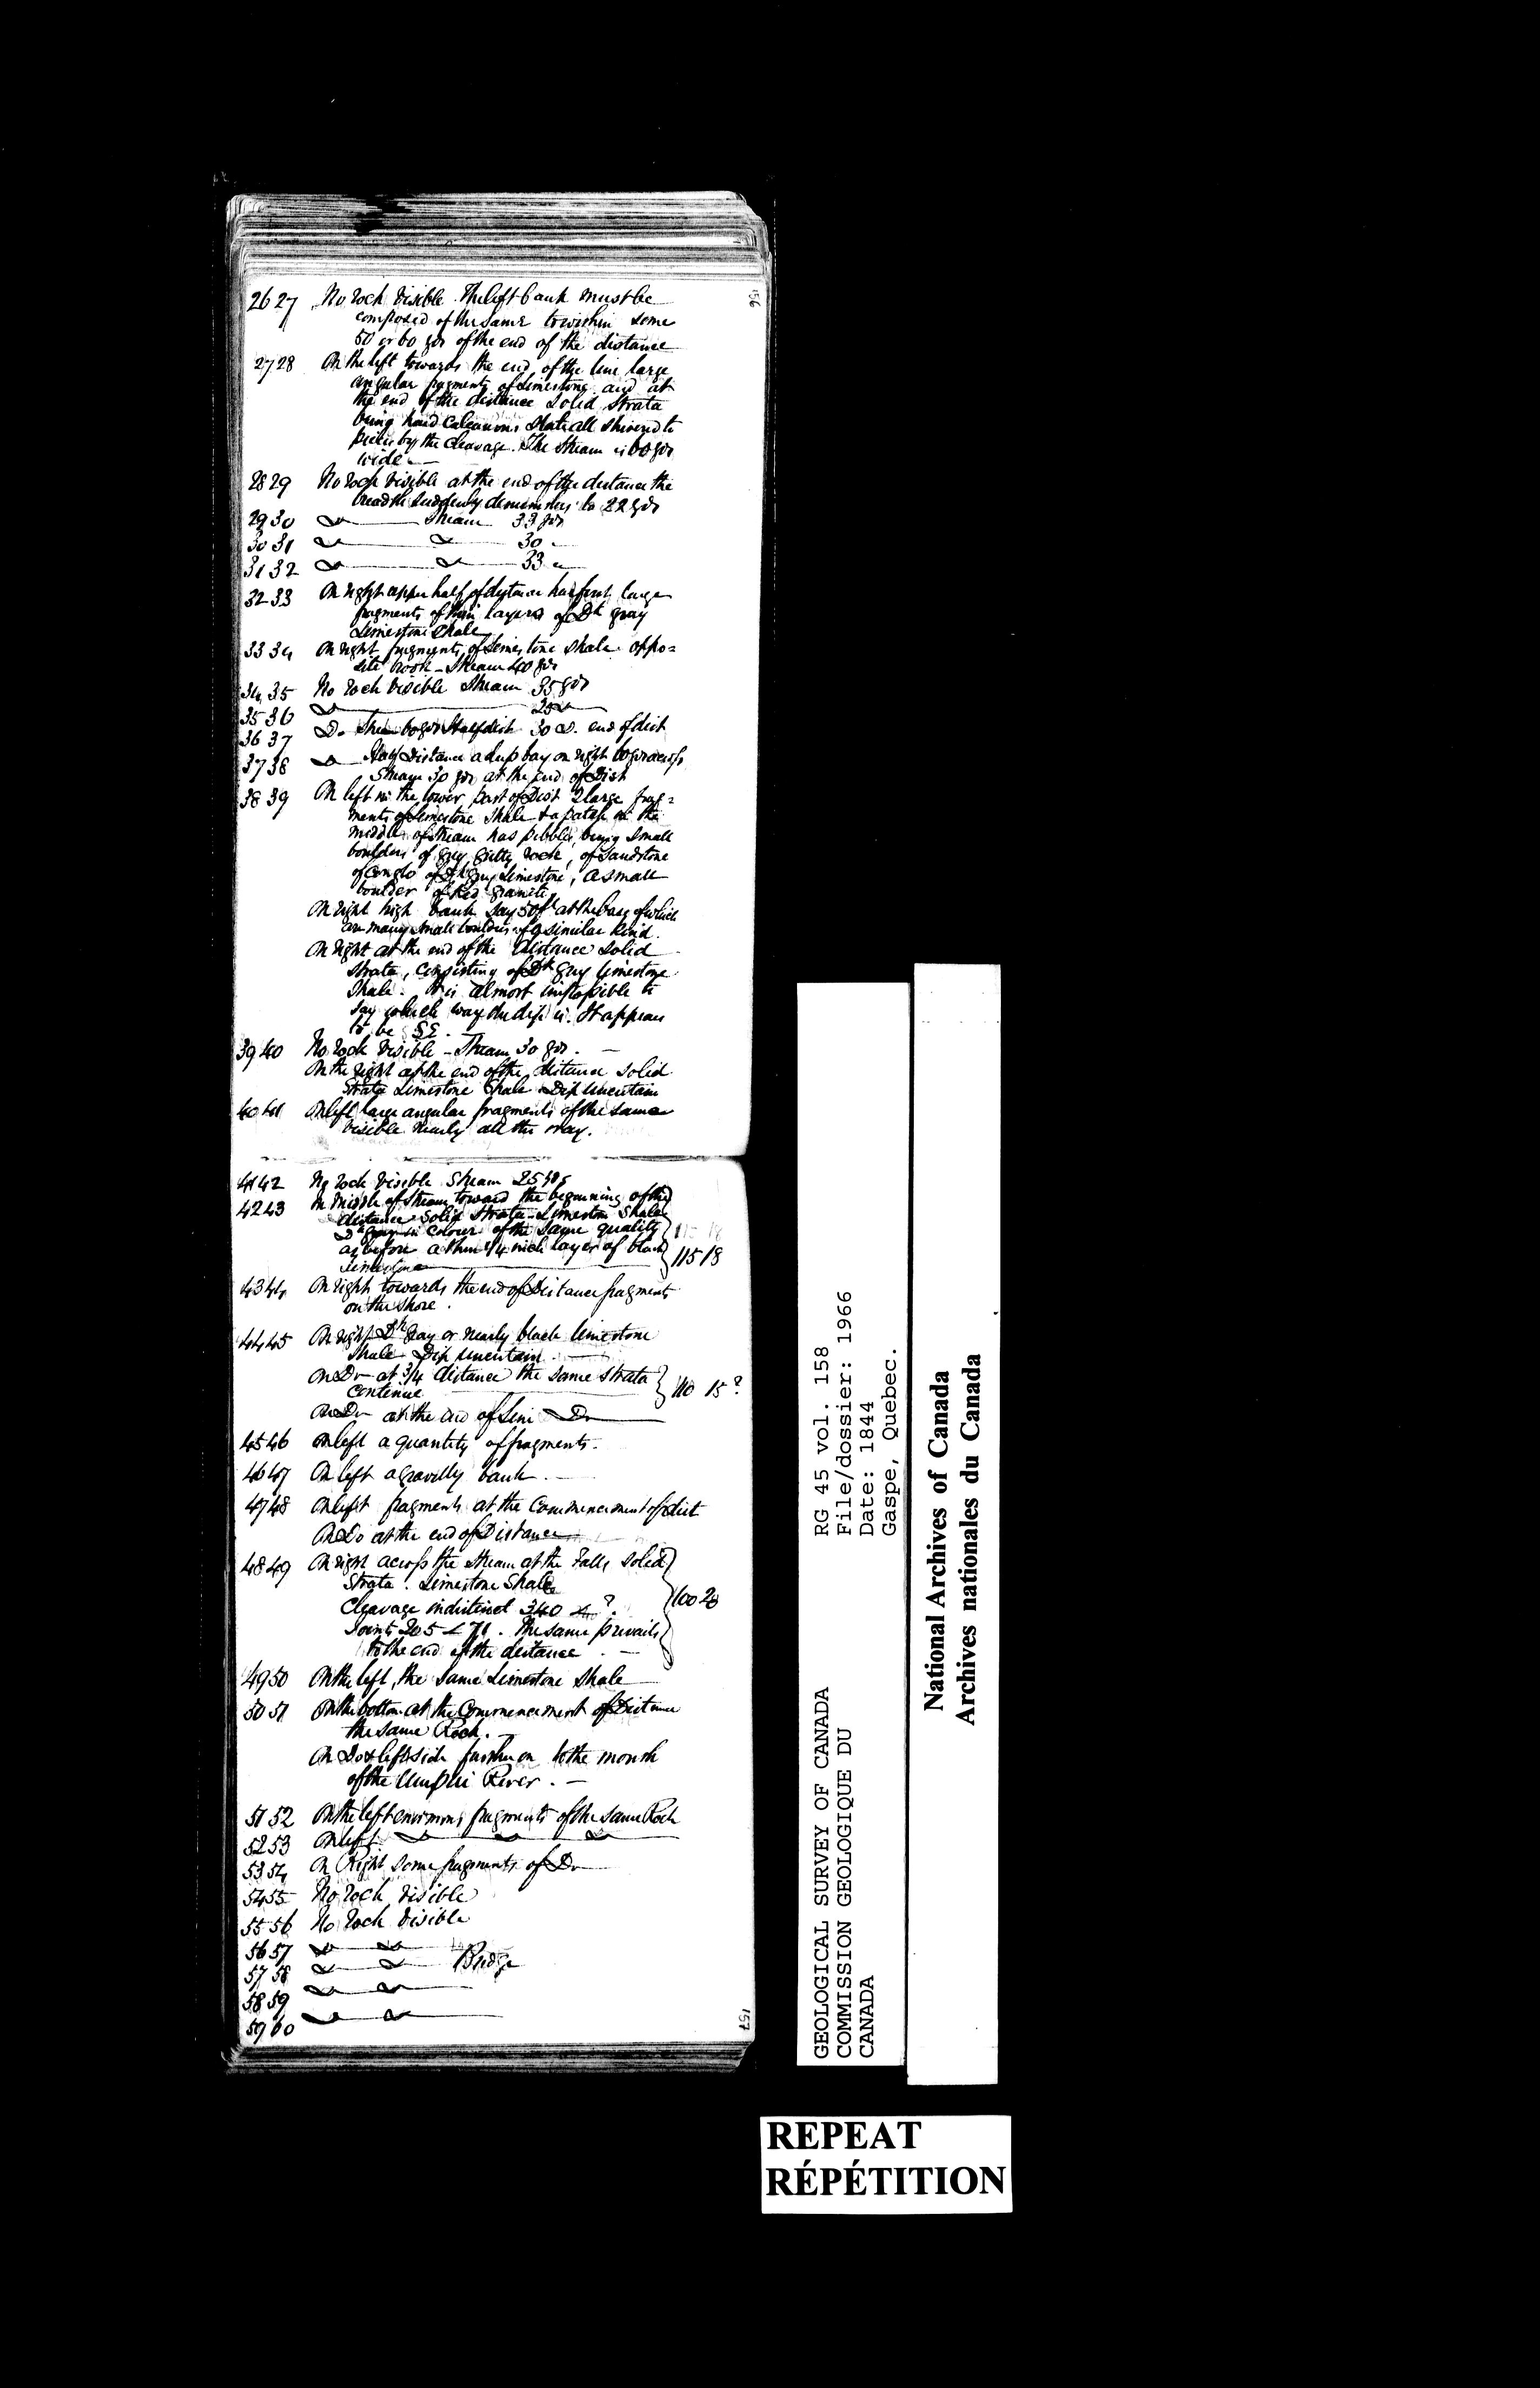 156
26 27 No rock visible. The left bank must be
composed of the same to within some
50 or 60 yds of the end of the distance
27 28 On the left towards the end of the line large
angular fragments of limestone and at
the end of the distance solid strata
being hard calcareous slate all shivered to
pieces by the cleavage. The Stream is 60 yds
wide —
28 29 No rock visible at the end of the distance the
breadth suddenly diminishes to 22 yds
29 30 Do — Stream 33 yds
30 31 Do — Do — 30 —
31 32 Do — Do — 33 —
32 33 On right upper half of distance has large
fragments of thin layers of Dk gray
Limestone Shale
33 34 On right fragments of limestone shale oppo=
site — Stream 40 yds
34 35 No rock visible Stream 35 yds
35 36 Do —
36 37 Do Stream 60 yds Half dist 30 Do. end of dist
37 38 Do — Half Distance a deep bay on right 60 yds across
Stream 30 yds at the end of Dist
38 39 On left in the lower part of Dist 2 large frag=
ments of limestone shale & a patch in the
middle of stream has pebbles, being small
boulders of grey gritty rock, of sandstone
of conglo of Dk grey limestone, a small
boulder of Red granite
On right high bank say 50 ft at the base of which
are many small boulders of a similar kind.
On right at the end of the Distance solid
strata, consisting of Dk grey limestone
Shale. It is almost impossible to
say which way the dip is. It appears
to be SE. —
39 40 No rock visible — Stream 30 yds. —
On the right at the end of the distance solid
Strata Limestone Shale Dip uncertain
40 41 On left large angular fragments of the same
visible nearly all the way.
41 42 No rock visible Stream 25 yds
42 43 In middle of stream toward the beginning of the
distance solid strata Limestone Shale
Dk gray in colour of the same quality
as before a thin 1/4 inch layer of black
limestone — 115 18
43 44 On right towards the end of Distance fragments
on the shore.
44 45 On right Dk gray or nearly black limestone
Shale Dip uncertain. —
On Do at 3/4 distance the same strata
continue — 110 15?
On Do at the end of line Do —
45 46 On left a quantity of fragments.
46 47 On left a gravilly bank. —
47 48 On left fragments at the Commencement of dist
On Do at the end of Distance
48 49 On right across the stream at the Falls solid
Strata. Limestone Shale
Cleavage indistinct 340 ∠ ?. 100 20
Joints 205 ∠ 71. The same prevails
to the end of the distance. —
49 50 On the left, the same Limestone Shale
50 51 On the bottom at the Commencement of Distance
the same Rock. —
On Do & left side further on to the mouth
of the River. —
51 52 On the left enormous fragments of the same Rock
52 53 On left Do Do Do
53 54 On Right some fragments of Do
54 55 No rock visible
55 56 No Rock visible
56 57 Do Do
57 58 Do Do Bridge
58 59 Do Do
59 60 Do Do
157
GEOLOGICAL SURVEY OF CANADA
COMMISSION GEOLOGIQUE DU
CANADA
RG 45 vol. 158
File/dossier: 1966
Date: 1844
Gaspe, Quebec.
National Archives of Canada
Archives nationales du Canada
REPEAT
RÉPÉTITION